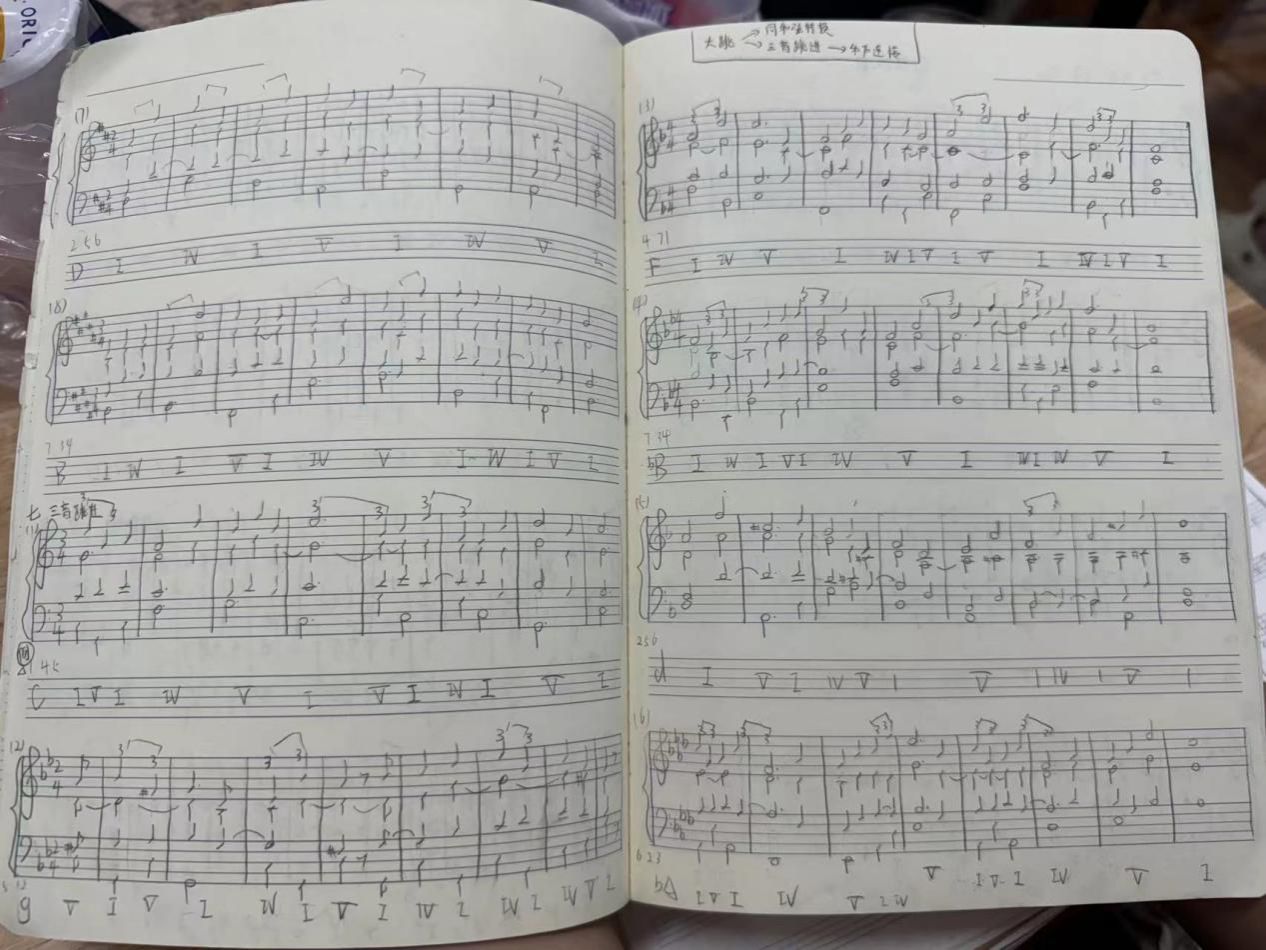 ORIG
(7)
2 5 6
D I IV I V I IV V I
(8)
7 3 4
B I IV I V I IV V I IV I V I
七 三音跳进
(1)
4 5
C I V I IV V I V I IV I V I
(2)
g V I V I IV I V I IV I IV I IV V I
大跳 同和弦转换
三音跳进
(3)
4 7 1
F I IV V I IV I V I V I IV I V I
(4)
7 3 4
bB I IV I V I IV V I IV I IV V I
(5)
2 5 6
d I V I IV V I V I IV I V I
(6)
6 2 3
bA I V I IV V I IV V I V I IV V I